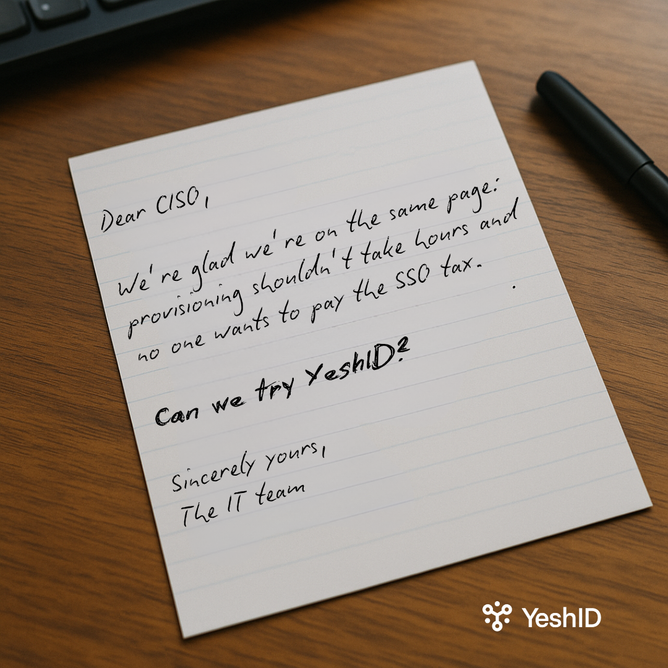 Dear CISO,
We're glad we're on the same page:
provisioning shouldn't take hours and
no one wants to pay the SSO tax.
Can we try YeshID?
Sincerely yours,
The IT team
YeshID